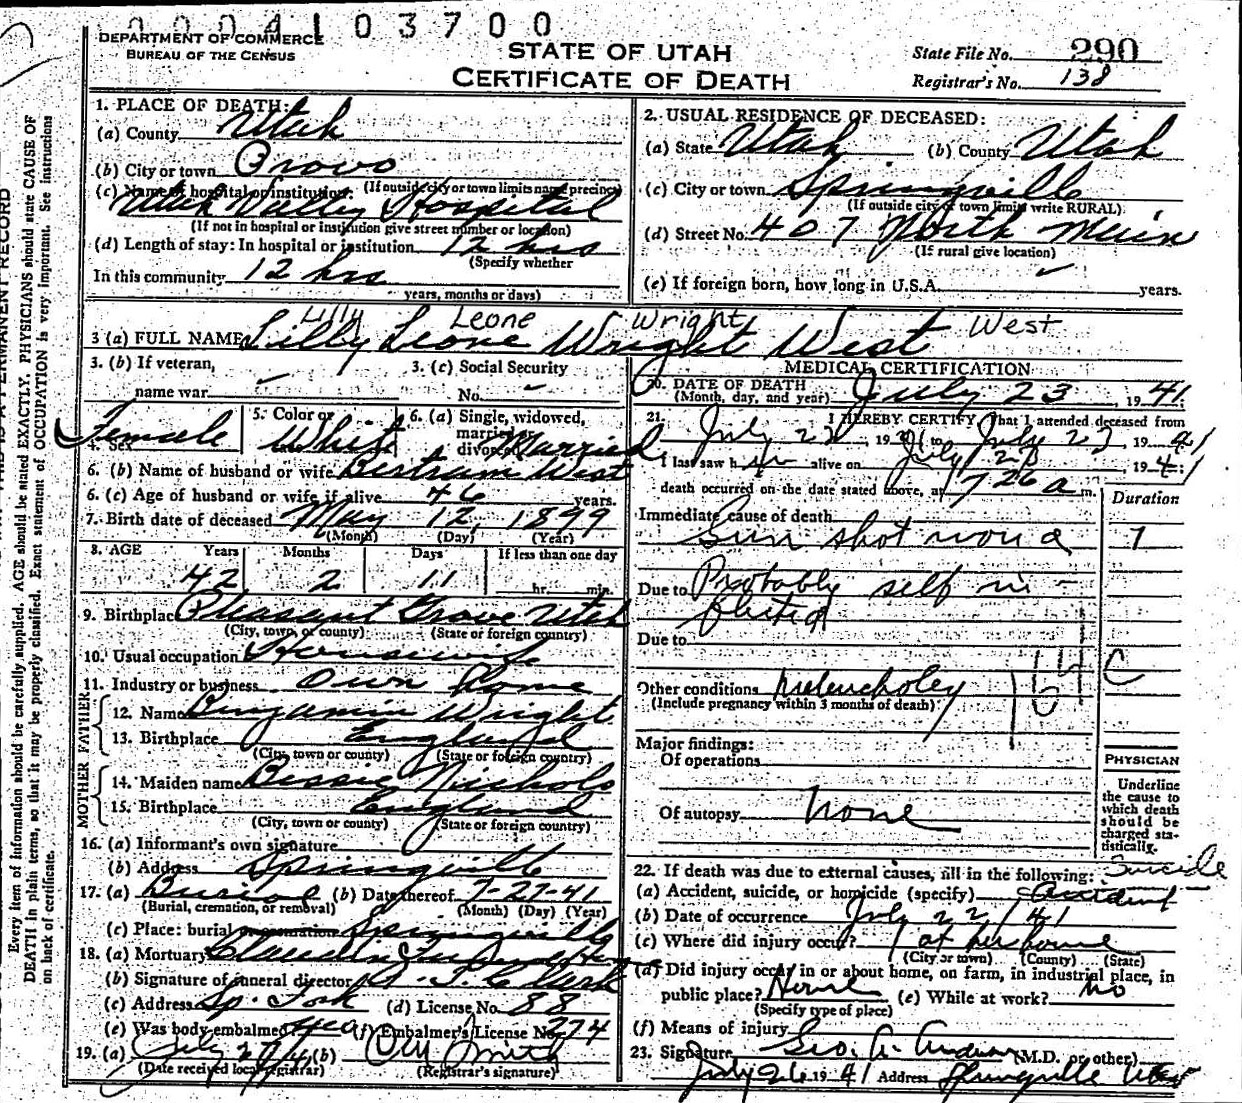 0004103700
DEPARTMENT OF COMMERCE
BUREAU OF THE CENSUS
STATE OF UTAH
CERTIFICATE OF DEATH
State File No. 290
Registrar's No. 138
Every item of information should be carefully supplied. AGE should be stated EXACTLY. PHYSICIANS should state CAUSE OF
DEATH in plain terms, so that it may be properly classified. Exact statement of OCCUPATION is very important. See instructions
on back of certificate.
1. PLACE OF DEATH:
(a) County Utah
(b) City or town Provo
(c) Name of hospital or institution: (If outside city or town limits name precinct)
Utah Valley Hospital
(If not in hospital or institution give street number or location)
(d) Length of stay: In hospital or institution 12 hrs
(Specify whether
In this community 12 hrs
years, months or days)
2. USUAL RESIDENCE OF DECEASED:
(a) State Utah (b) County Utah
(c) City or town Springville
(If outside city or town limits write RURAL)
(d) Street No. 407 North Main
(If rural give location)
(e) If foreign born, how long in U.S.A. years.
Lilly Leone Wright West
3 (a) FULL NAME Lilly Leone Wright West
3. (b) If veteran,
name war
3. (c) Social Security
No.
4. Sex Female
5. Color or White
6. (a) Single, widowed,
married,
divorced Married
6. (b) Name of husband or wife Bertram West
6. (c) Age of husband or wife if alive 46 years.
7. Birth date of deceased May 12, 1899
(Month) (Day) (Year)
8. AGE Years Months Days If less than one day
42 2 11 hr. min.
9. Birthplace Pleasant Grove Utah
(City, town, or county) (State or foreign country)
10. Usual occupation Housewife
11. Industry or business Own home
FATHER
12. Name Benjamin Wright
13. Birthplace England
(City, town or county) (State or foreign country)
MOTHER
14. Maiden name Bessie Nichols
15. Birthplace England
(City, town or county) (State or foreign country)
16. (a) Informant's own signature
(b) Address Springville
17. (a) Burial (b) Date thereof 7-27-41
(Burial, cremation, or removal) (Month) (Day) (Year)
(c) Place: burial or cremation Springville
18. (a) Mortuary Claudin Funeral Home
(b) Signature of funeral director
(c) Address Sp. Fork (d) License No. 88
(e) Was body embalmed yea (f) Embalmer's License No. 274
19. (a) July (b) Smith
(Date received local registrar) (Registrar's signature)
MEDICAL CERTIFICATION
20. DATE OF DEATH
(Month, day, and year) July 23, 1941
21. I HEREBY CERTIFY That I attended deceased from
July 22, 1941 to July 23 1941
I last saw her alive on July 23 1941
death occurred on the date stated above, at 726 a m.
Duration
Immediate cause of death
Gun shot wound
Due to Probably self in-
flicted
Due to
164 C
Other conditions Melencholey
(Include pregnancy within 3 months of death)
Major findings:
Of operations
Of autopsy None
PHYSICIAN
Underline
the cause to
which death
should be
charged sta-
tistically.
22. If death was due to external causes, fill in the following: Suicide
(a) Accident, suicide, or homicide (specify) Accident
(b) Date of occurrence July 22/41
(c) Where did injury occur? at her home
(City or town) (County) (State)
(d) Did injury occur in or about home, on farm, in industrial place, in
public place? Home (e) While at work? No
(Specify type of place)
(f) Means of injury
23. Signature Geo. A. Anderson (M.D. or other)
July 26 1941 Address Springville Utah